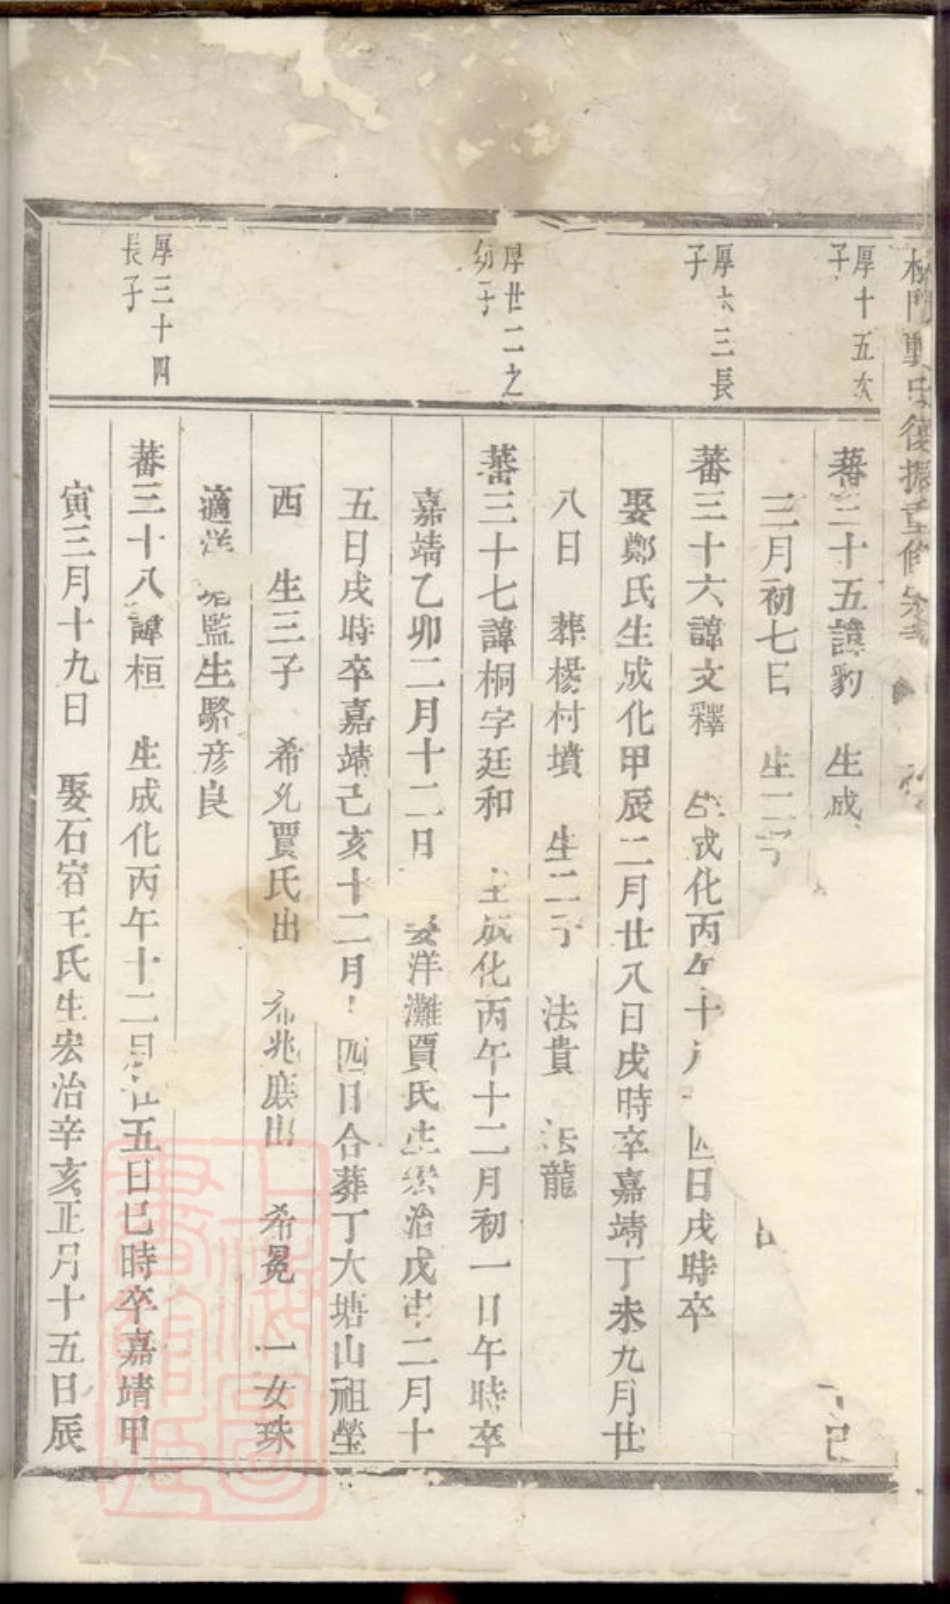 厚十五次
子
蕃三十五諱豹 生成
三月初七日 生二子
厚六三長
子
蕃三十六諱文釋 生成化丙午十 四日戌時卒
娶鄭氏生成化甲辰二月廿八日戌時卒嘉靖丁未九月廿
八日 葬楊村墳 生二子 法貴 法龍
厚廿二之
幼子
蕃三十七諱桐字廷和 生成化丙午十二月初一日午時卒
嘉靖乙卯二月十二日 娶洋灘賈氏生宏治戊 二月十
五日戌時卒嘉靖己亥十二月 四日合葬丁大塘山祖塋
西 生三子 希 賈氏出 希兆庶出 希冕 一女珠
適洋 監生駱彦良
厚三十四
長子
蕃三十八諱桓 生成化丙午十二月廿五日巳時卒嘉靖甲
寅三月十九日 娶石窘王氏生宏治辛亥正月十五日辰